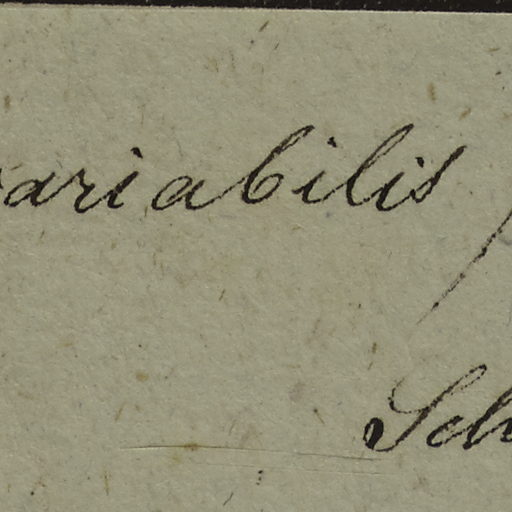 variabilis
Sch